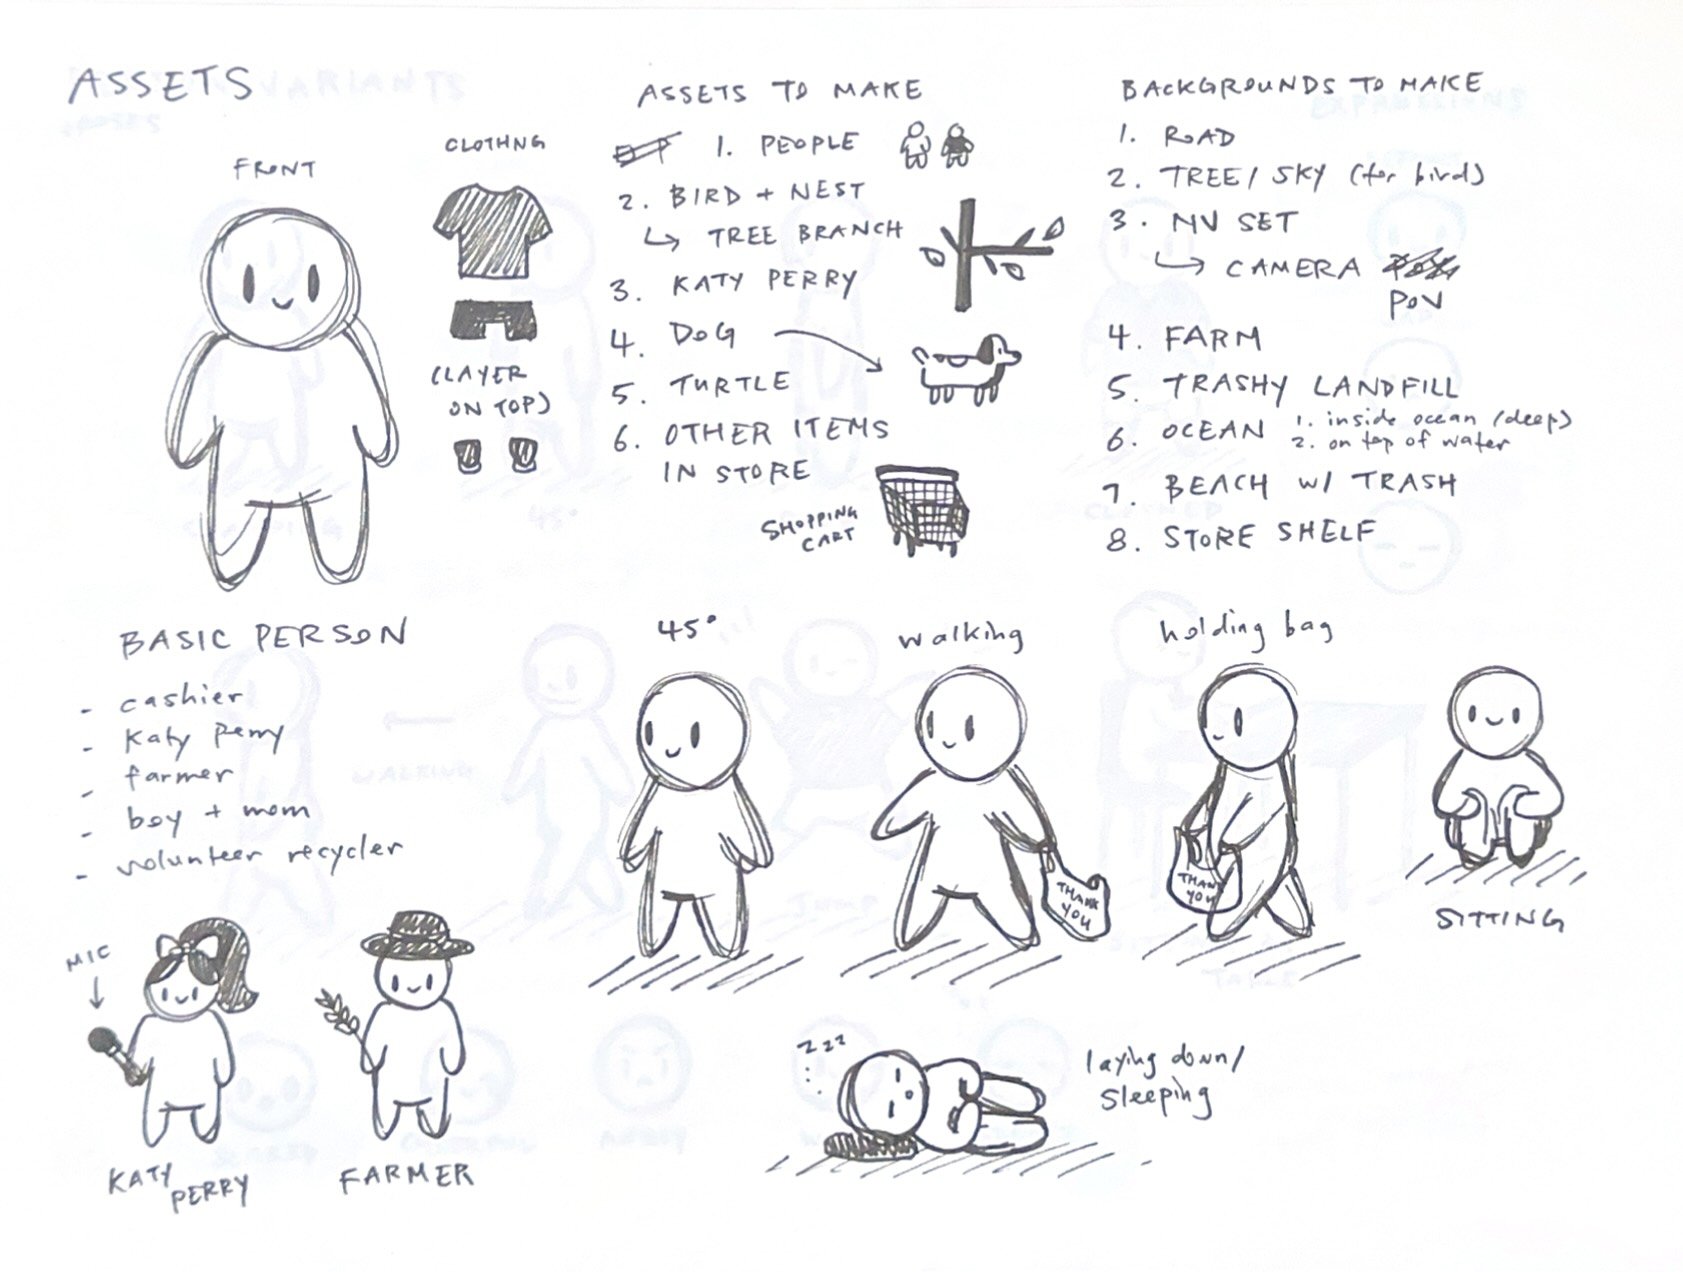 ASSETS
FRONT
CLOTHNG
(LAYER
ON TOP)
BASIC PERSON
- cashier
- Katy Perry
- farmer
- boy + mom
- volunteer recycler
MIC
KATY
PERRY
FARMER
ASSETS TO MAKE
1. PEOPLE
2. BIRD + NEST
↳ TREE BRANCH
3. KATY PERRY
4. DOG
5. TURTLE
6. OTHER ITEMS
IN STORE
SHOPPING
CART
BACKGROUNDS TO MAKE
1. ROAD
2. TREE / SKY (for bird)
3. MV SET
↳ CAMERA
POV
4. FARM
5. TRASHY LANDFILL
6. OCEAN 1. inside ocean (deep)
2. on top of water
7. BEACH w/ TRASH
8. STORE SHELF
45°
walking
THANK
YOU
holding bag
THANK
YOU
SITTING
zzz
laying down/
sleeping